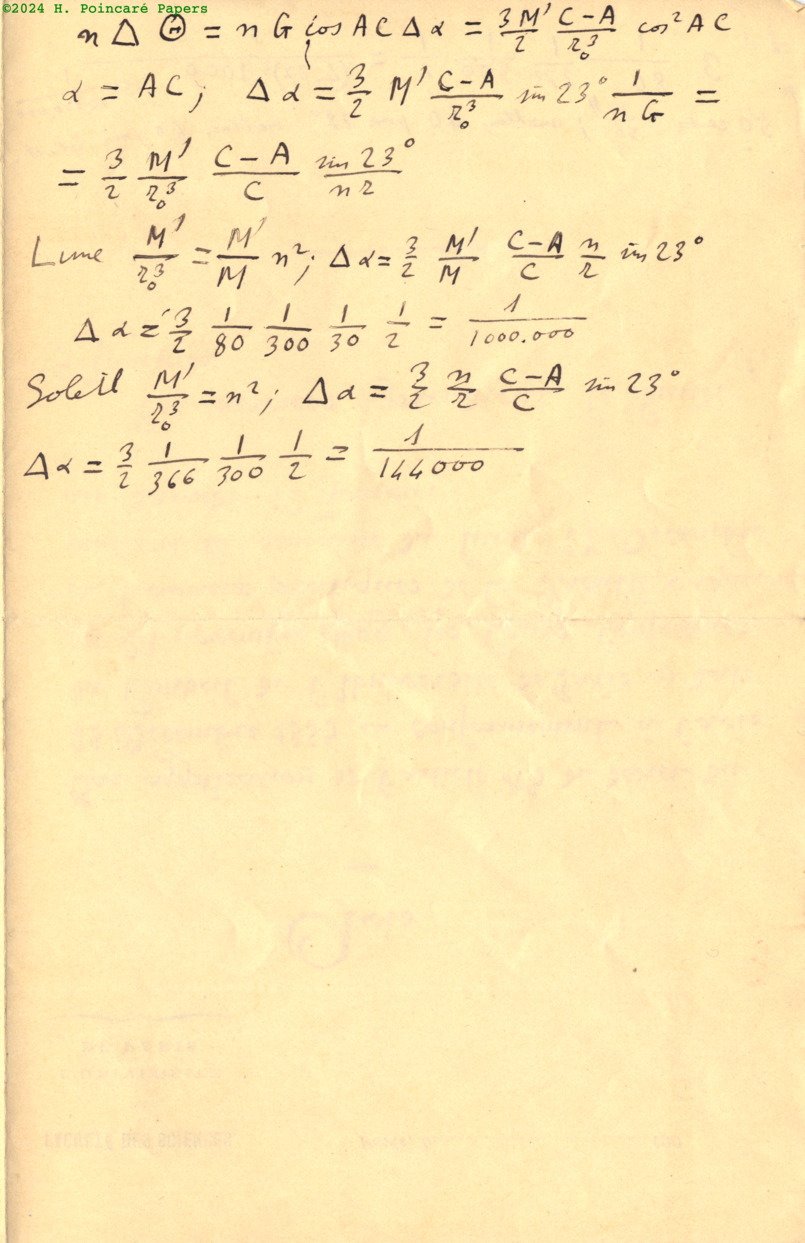 ©2024 H. Poincaré Papers
n Δ Θ = n G cos AC Δα = \frac{3M'}{2} \frac{C-A}{r_0^3} cos² AC
α = AC; Δα = \frac{3}{2} M' \frac{C-A}{r_0^3} sin 23° \frac{1}{n G} =
= \frac{3}{2} \frac{M'}{r_0^3} \frac{C-A}{C} \frac{sin 23°}{n r}
Lune \frac{M'}{r_0^3} = \frac{M'}{M} n²; Δα = \frac{3}{2} \frac{M'}{M} \frac{C-A}{C} \frac{n}{r} sin 23°
Δα = \frac{3}{2} \frac{1}{80} \frac{1}{300} \frac{1}{30} \frac{1}{2} = \frac{1}{1000.000}
Soleil \frac{M'}{r_0^3} = n²; Δα = \frac{3}{2} \frac{n}{r} \frac{C-A}{C} sin 23°
Δα = \frac{3}{2} \frac{1}{366} \frac{1}{300} \frac{1}{2} = \frac{1}{144000}